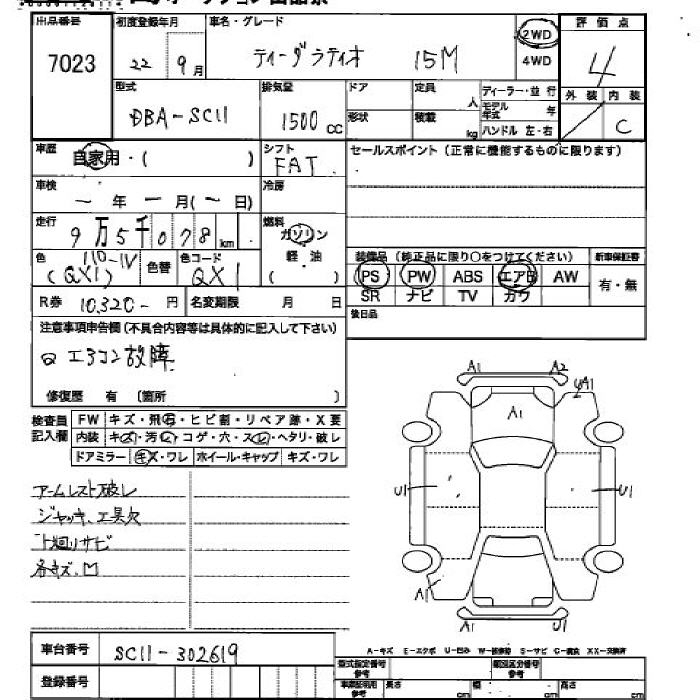 出品番号 初度登録年月 車名・グレード 2WD 評価点
7023 22年9月 ティーダラティオ 15M 4WD 4
型式 排気量 ドア 定員 人 ディーラー・並行 外装 内装
DBA-SC11 1500cc 形状 積載 kg モデル年式 年 C
ハンドル 左・右
車歴 自家用・( ) シフト FAT セールスポイント(正常に機能するものに限ります)
車検 ー年ー月(ー日) 冷房
走行 9万5千078km 燃料 ガソリン
軽油
( )
色 (QX1) 色替 色コード QX1
装備品(純正品に限り○をつけてください) 新車保証書
PS PW ABS エアB AW 有・無
SR ナビ TV カワ
R券 10,320-円 名変期限 月 日 後日品
注意事項申告欄(不具合内容等は具体的に記入して下さい)
エアコン故障
修復歴 有 〔箇所 〕
検査員記入欄 FW キズ・飛石・ヒビ割・リペア跡・X要
内装 キズ・汚レ・コゲ・穴・スレ・ヘタリ・破レ
ドアミラー キズ・ワレ ホイール・キャップ キズ・ワレ
アームレスト破レ
ジャッキ、工具欠
下廻リサビ
各キズ.凹
A1 A2
A1 UA1
U1 U1
A1
A1 U1
A-キズ E-エクボ U-凹み W-補修跡 S-サビ C-腐食 XX-交換済
車台番号 SC11-302619
登録番号
型式指定番号 参考 類別区分番号 参考
車庫証明用 参考 長さ cm 幅 cm 高さ cm